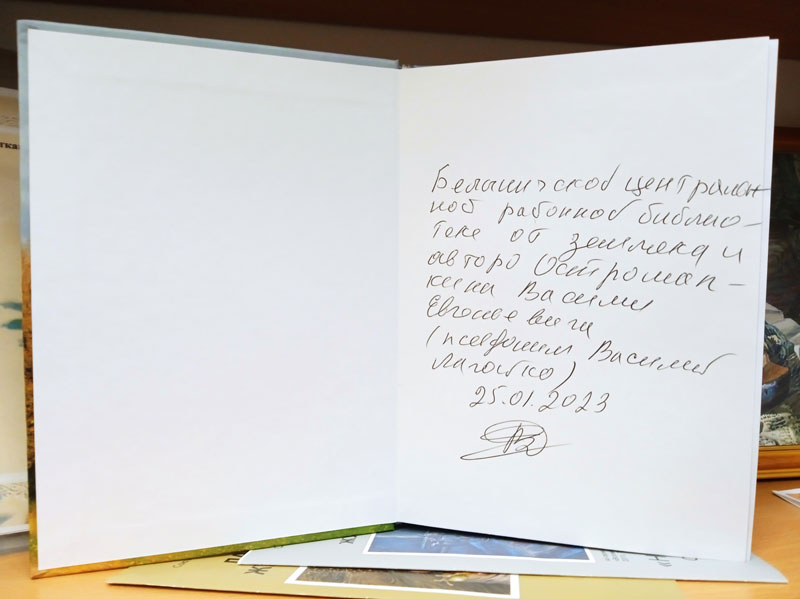 Белыничской централь-
ной районной библио-
теке от земляка и
автора Остромап-
кина Василия
Евгеньевича
(псевдоним Василий
Лагойко)
25.01.2023
тка